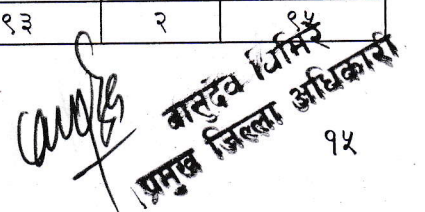 ९३ २ ९५
बासुदेव घिमिरे
प्रमुख जिल्ला अधिकारी
१५